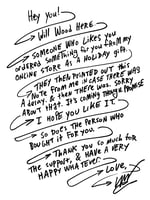 Hey you!
Will Wood Here
Someone who likes you
ordered something for you from my
online store as a holiday gift.
They then printed out this
note from me in case there was
a delay, & then there was. Sorry
about that. It's coming though, I promise
I hope you like it.
So does the person who
bought it for you.
Thank you so much for
the support, & have a very
happy whatever!
Love,